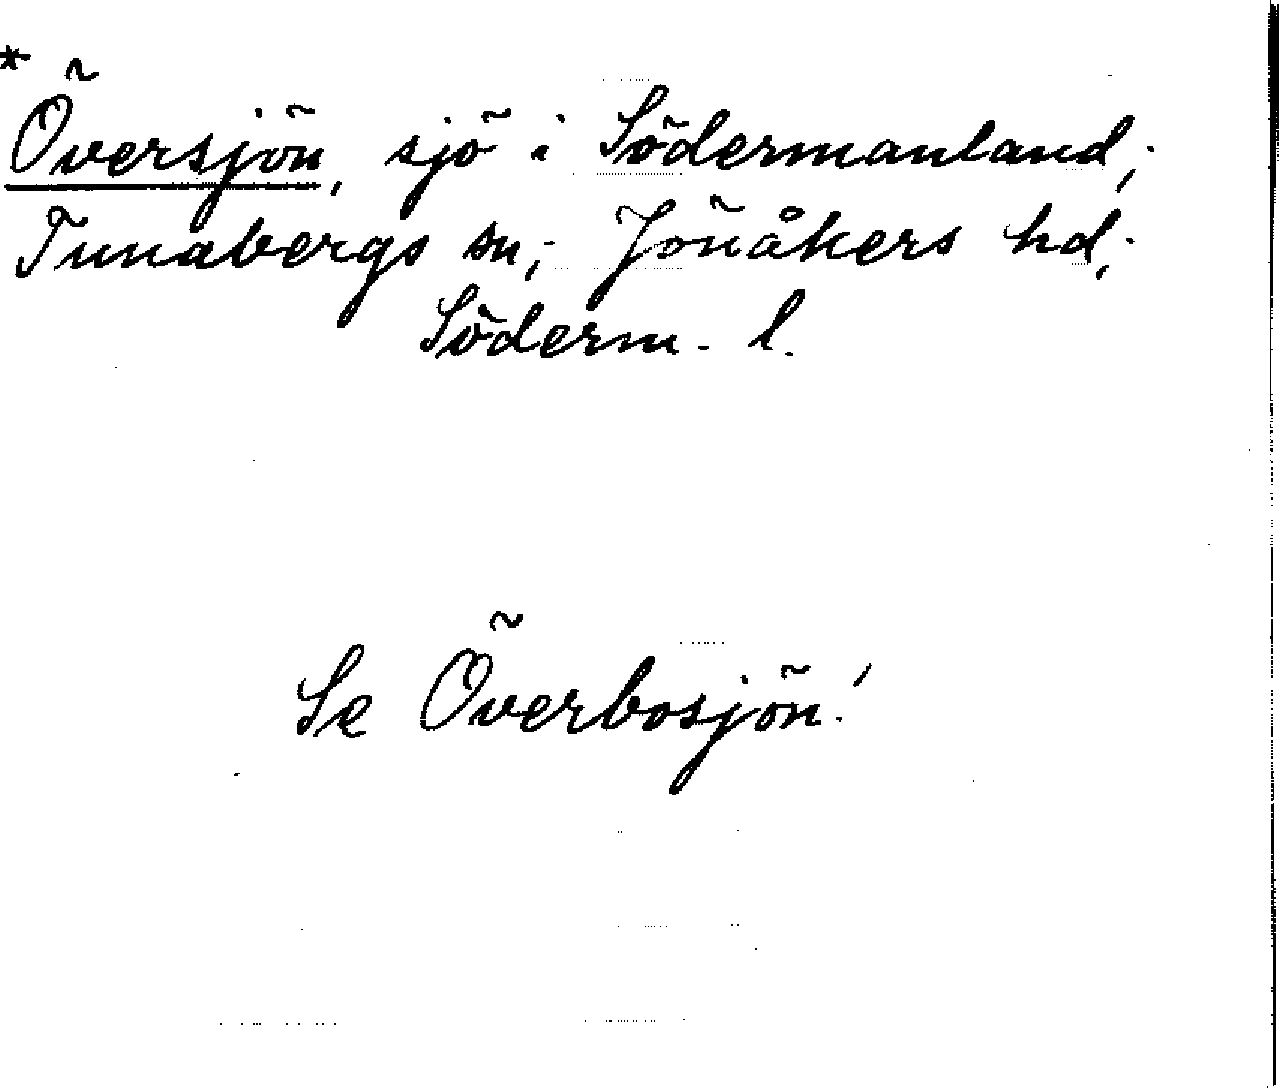 * Översjön, sjö i Södermanland;
Tunabergs sn; Jönåkers hd;
Söderm. l.
Se Överbosjön!